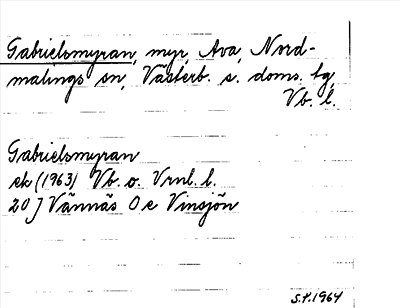 Gabrielsmyran, myr, Ava, Nord-
malings sn, Västerb. s. doms. tg,
Vb. l.
Gabrielsmyran
ek (1963) Vb. o. Vrnl. l.
20 J Vännäs O e Vinsjön
S.P. 1964